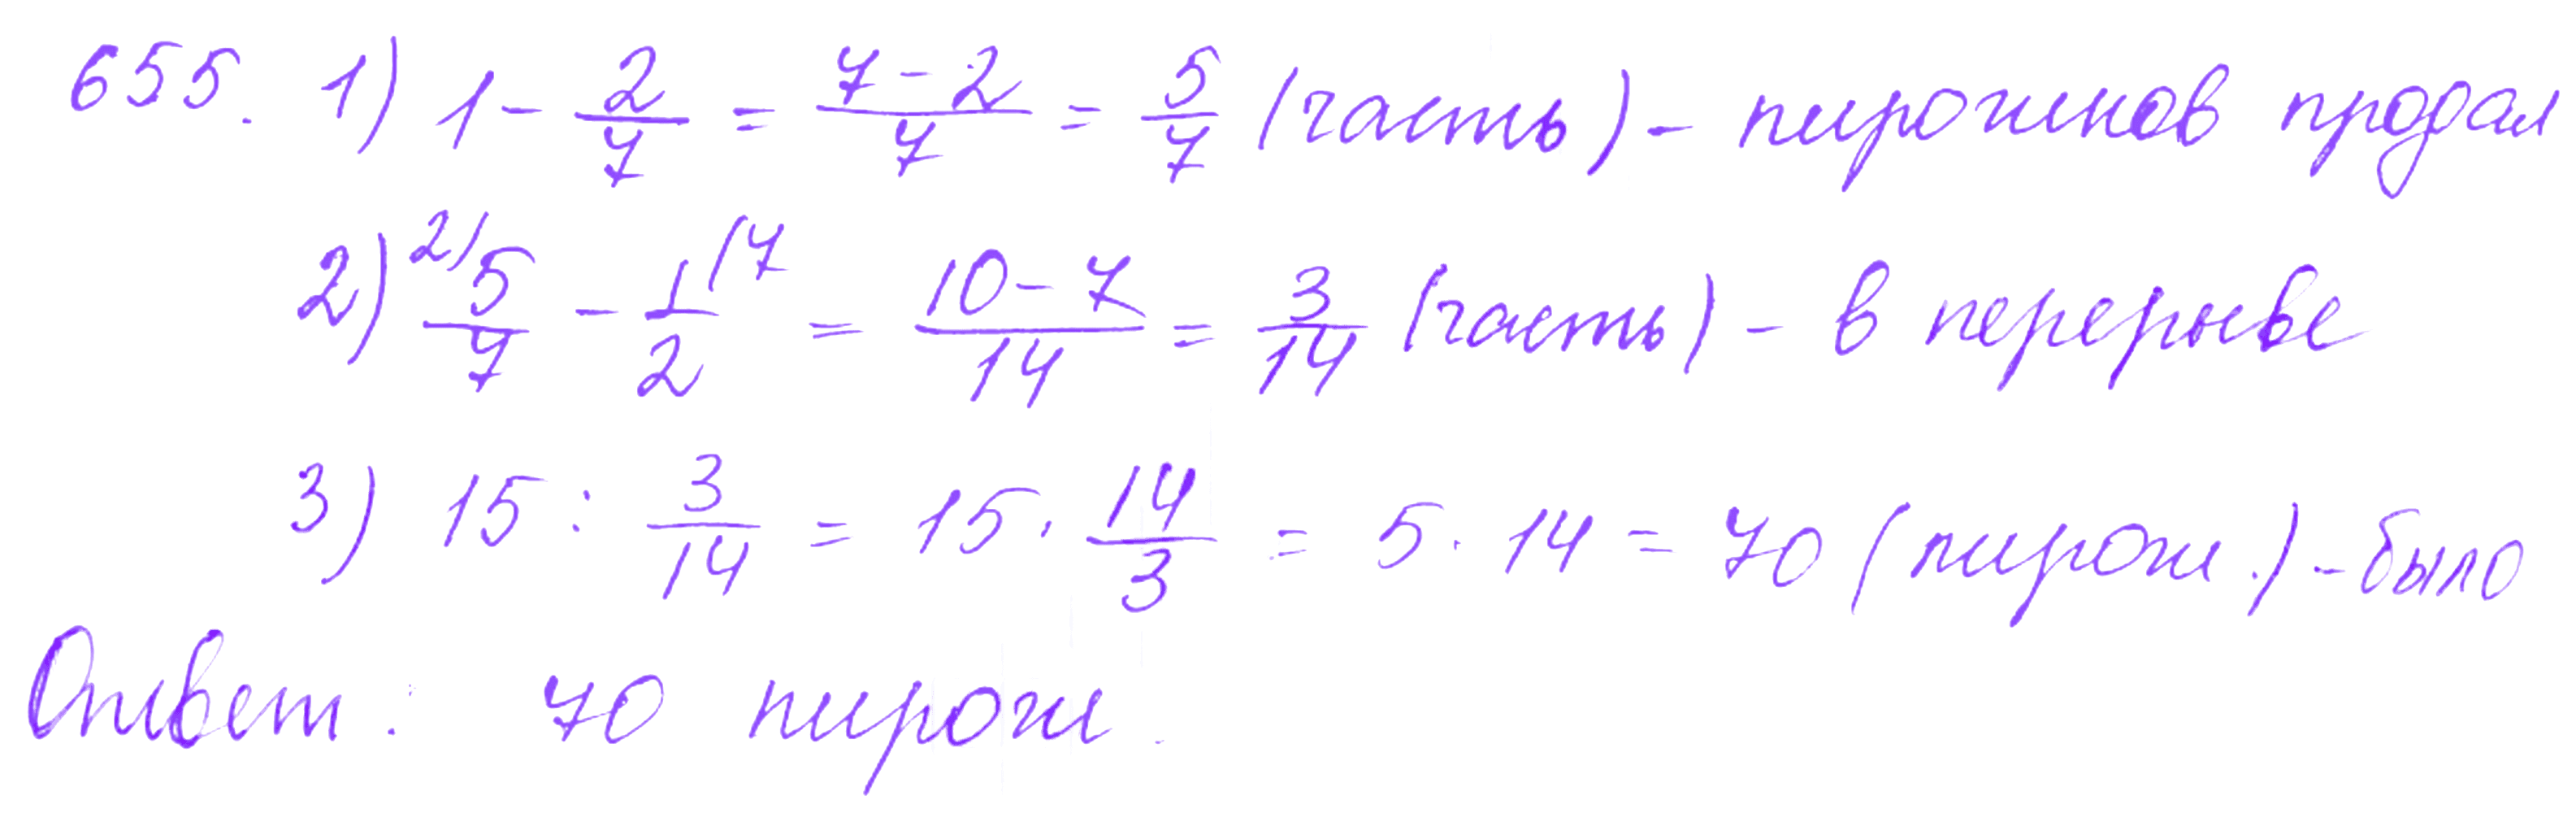 655. 1) 1 - 2/7 = (7-2)/7 = 5/7 (часть) - пирожков продал
2) ²⁾5/7 - 1/2⁽⁷ = (10-7)/14 = 3/14 (часть) - в перерыве
3) 15 : 3/14 = 15 · 14/3 = 5 · 14 = 70 (пирож.) - было
Ответ: 70 пирож.